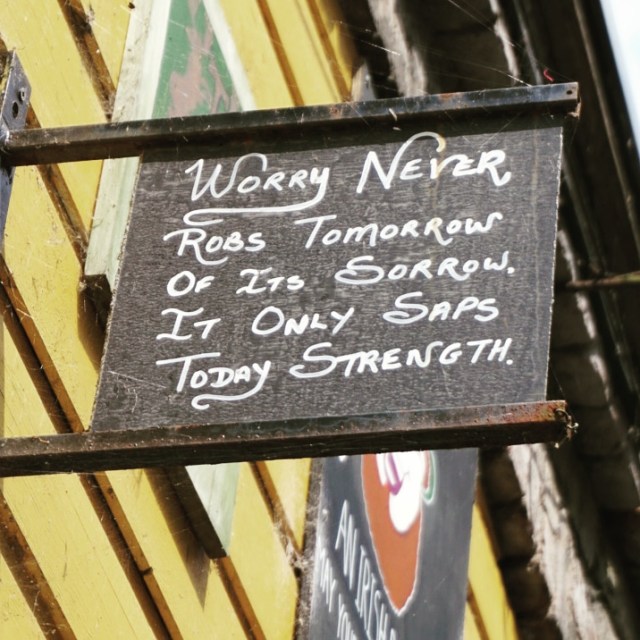 Worry Never
Robs Tomorrow
Of Its Sorrow.
It Only Saps
Today Strength.
AN IRISH